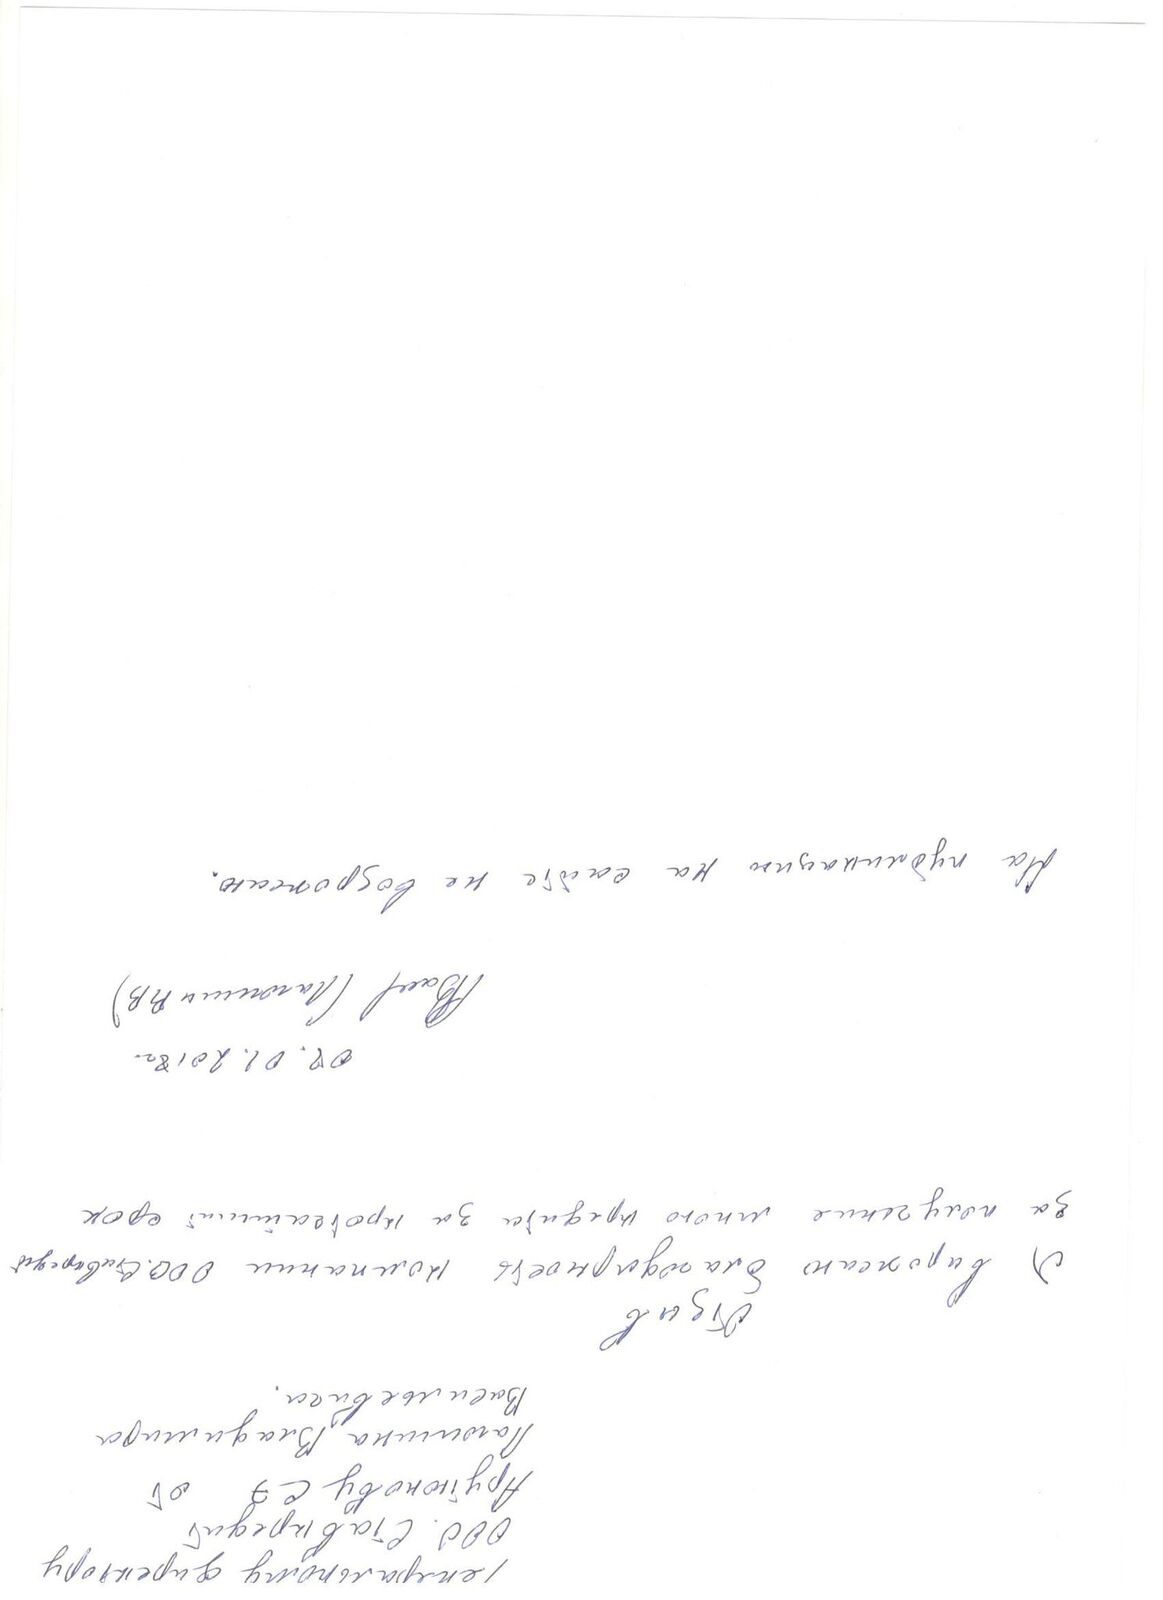 Генеральному директору
ООО. Ставкредит
Арутюнову С Э от
Лаюшина Владимира
Васильевича.
Отзыв
Я выражаю благодарность компании ООО. Ставкредит
за получение мною кредита за кротчайший срок
09.01.2018г.
На публикацию на сайте не возрожаю.